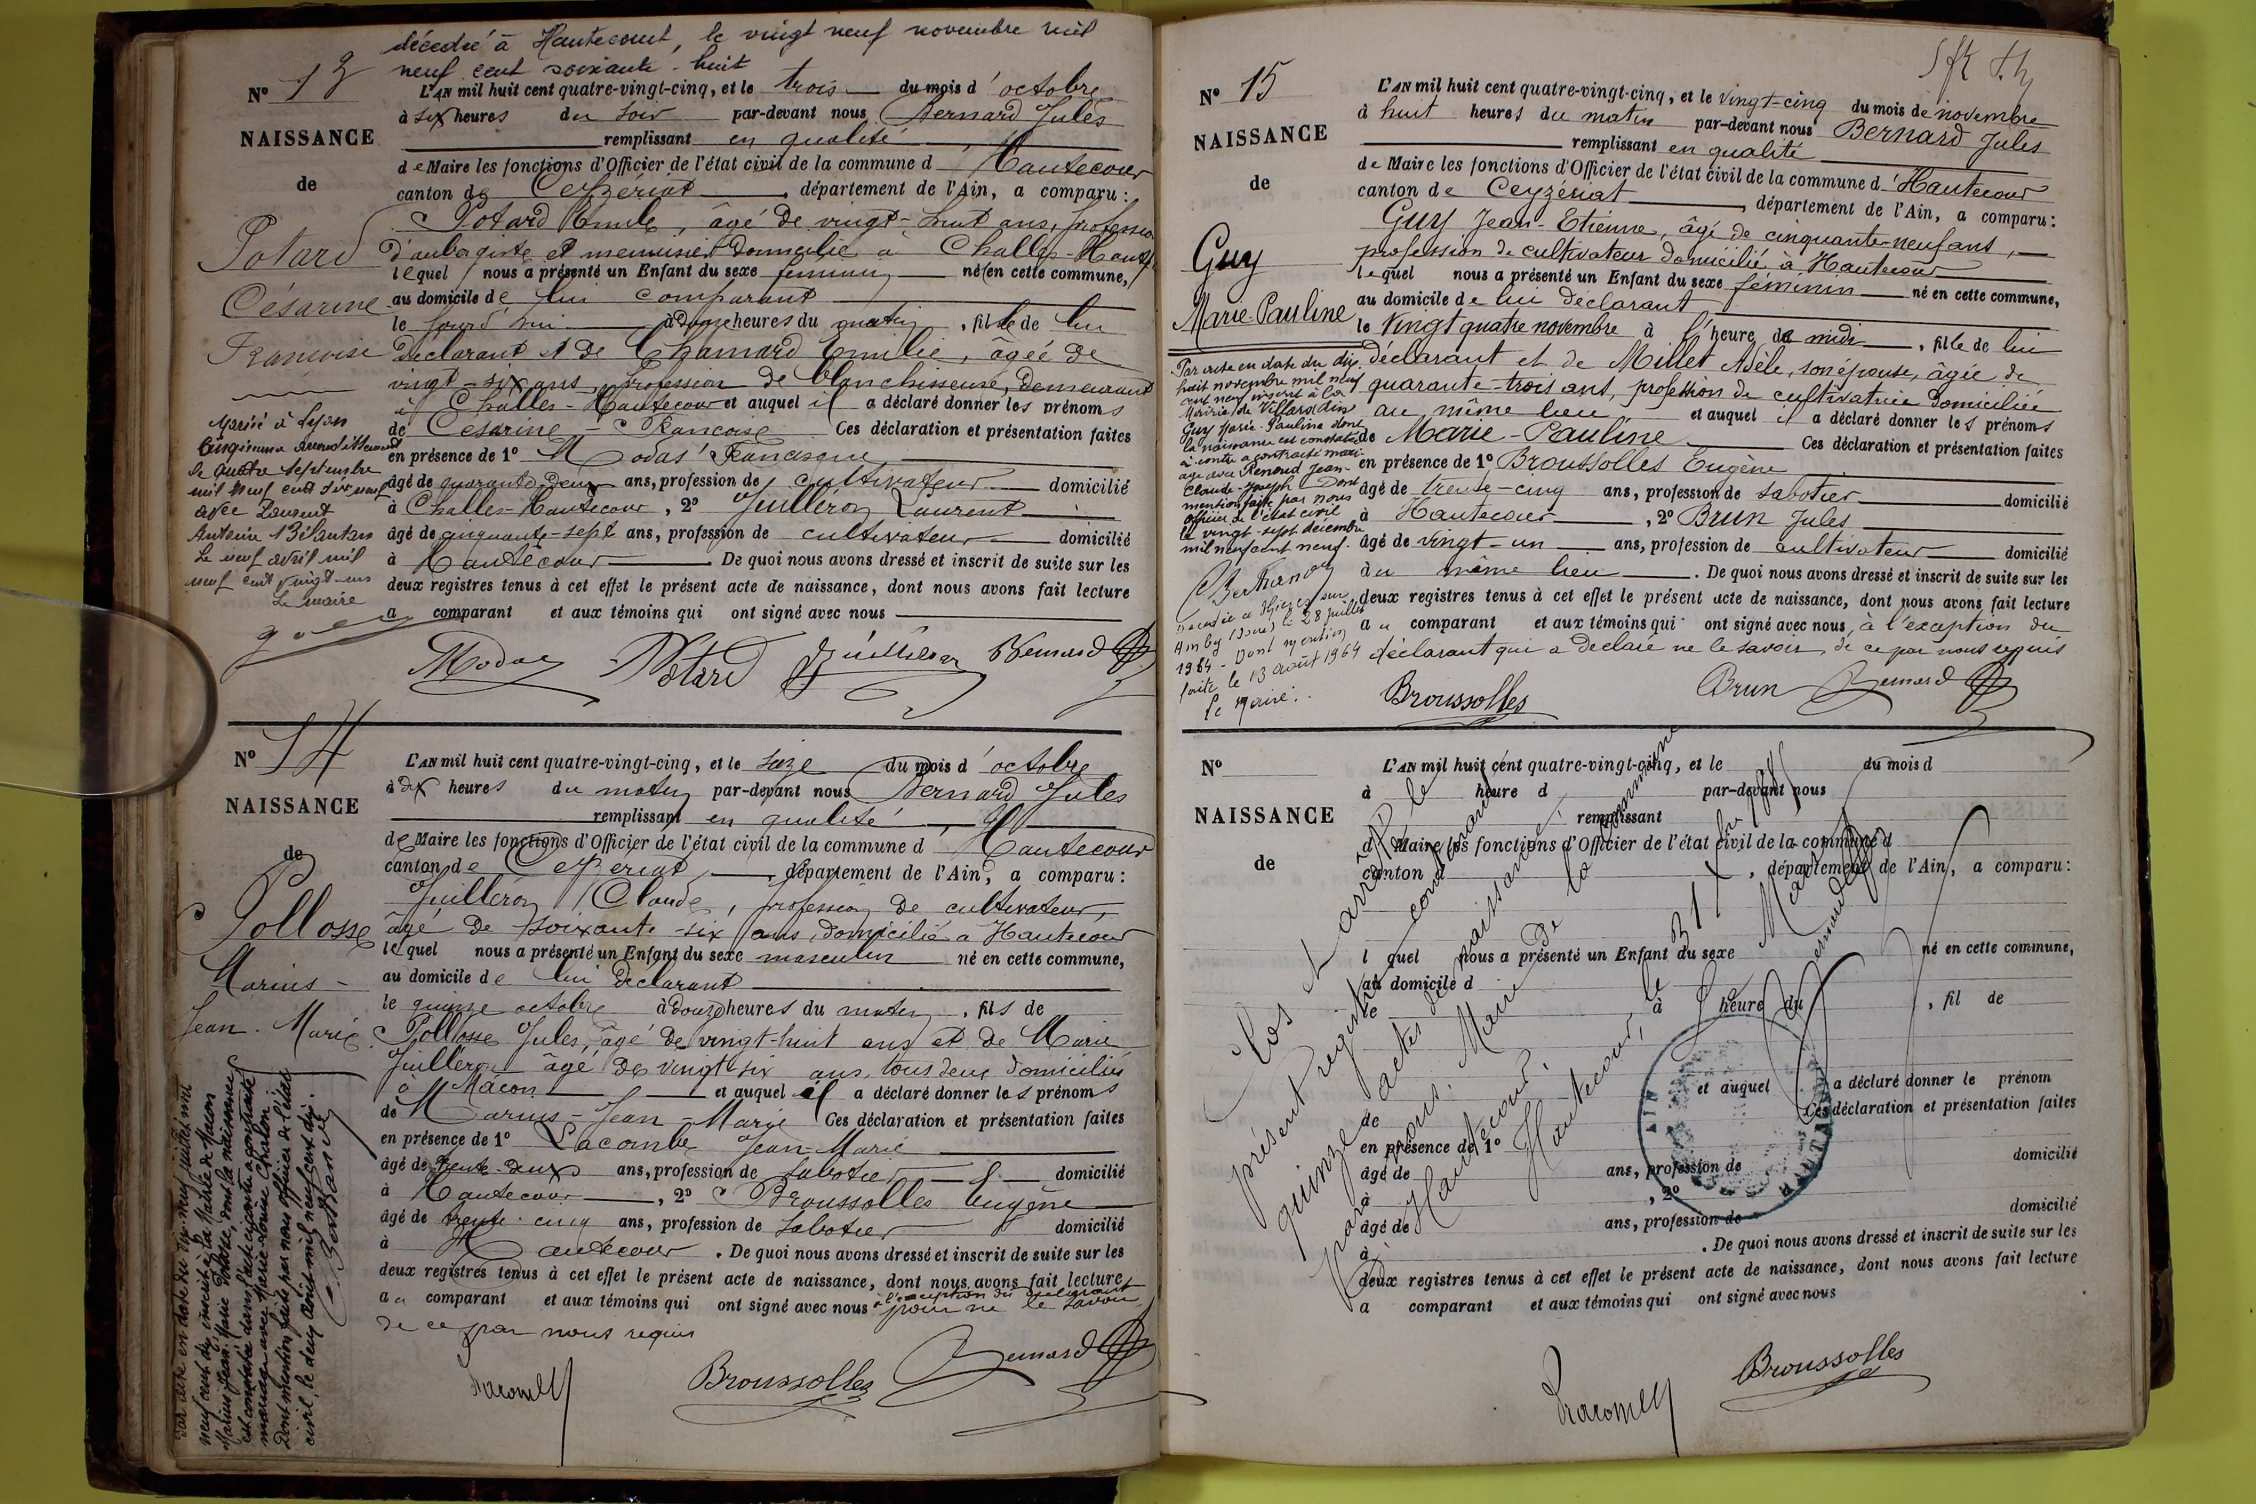 décédée à Hautecourt, le vingt neuf novembre mil
neuf cent soixante-huit
Nº 13
NAISSANCE
de
Potard
Césarine
Françoise
Marié à Lyon
Cinquième arrondissement
le quatre septembre
mil neuf cent dix neuf
avec Laurent
Antoine
Le neuf avril mil
neuf cent vingt-un
Le maire
L'AN mil huit cent quatre-vingt-cinq, et le trois du mois d'octobre
à six heures du soir par-devant nous Bernard Jules
remplissant en qualité
de Maire les fonctions d'Officier de l'état civil de la commune d'Hautecour
canton de Ceyzériat, département de l'Ain, a comparu :
Potard Emile, âgé de vingt-huit ans, profession
d'aubergiste et menuisier domicilié à Challes-Haut
lequel nous a présenté un Enfant du sexe féminin né en cette commune,
au domicile de lui comparant
le jourd'hui à douze heures du matin, fille de lui
déclarant et de Chamard Emilie, âgée de
vingt-six ans, profession de blanchisseuse, demeurant
à Challes-Hautecour et auquel il a déclaré donner les prénoms
de Césarine-Françoise Ces déclaration et présentation faites
en présence de 1º Modas Francisque
âgé de quarante-deux ans, profession de cultivateur domicilié
à Challes-Hautecour, 2º Juilléron Laurent
âgé de cinquante-sept ans, profession de cultivateur domicilié
à Hautecour. De quoi nous avons dressé et inscrit de suite sur les
deux registres tenus à cet effet le présent acte de naissance, dont nous avons fait lecture
a comparant et aux témoins qui ont signé avec nous
Modas Potard Juilléron Bernard
Nº 14
NAISSANCE
de
Pollosse
Marius-
Jean-Marie
Par acte en date du dix-neuf juillet mil
neuf cent dix inscrit à la Mairie de Mâcon
Marius Jean-Marie Pollosse, dont la naissance
est constatée dans l'acte ci-contre a contracté
mariage avec Marie-Louise Chalon
Dont mention faite par nous officier de l'état
civil, le deux Août mil neuf cent dix.
L'AN mil huit cent quatre-vingt-cinq, et le seize du mois d'octobre
à dix heures du matin par-devant nous Bernard Jules
remplissant en qualité
de Maire les fonctions d'Officier de l'état civil de la commune d'Hautecour
canton de Ceyzériat, département de l'Ain, a comparu :
Juilleron Claude, profession de cultivateur,
âgé de soixante-six ans, domicilié à Hautecour
lequel nous a présenté un Enfant du sexe masculin né en cette commune,
au domicile de lui déclarant
le quinze octobre à douze heures du matin, fils de
Pollosse Jules, âgé de vingt-huit ans et de Marie
Juilleron âgé de vingt-six ans, tous deux domiciliés
à Mâcon et auquel il a déclaré donner les prénoms
de Marius-Jean-Marie Ces déclaration et présentation faites
en présence de 1º Lacombe Jean-Marie
âgé de trente-deux ans, profession de sabotier domicilié
à Hautecour, 2º Broussolles Eugène
âgé de trente-cinq ans, profession de sabotier domicilié
à Hautecour. De quoi nous avons dressé et inscrit de suite sur les
deux registres tenus à cet effet le présent acte de naissance, dont nous avons fait lecture
au comparant et aux témoins qui ont signé avec nous à l'exception du déclarant
pour ne le savoir
de ce par nous requis
Broussolles Bernard
Nº 15
NAISSANCE
de
Guy
Marie-Pauline
Par acte en date du dix-
huit novembre mil neuf
cent neuf inscrit à la
Mairie de Villarodin
Guy Marie-Pauline dont
la naissance est constatée
ci-contre a contracté mari-
age avec Renaud Jean-
Claude-Joseph Dont
mention faite par nous
officier de l'état civil
le vingt-sept décembre
mil neuf cent neuf.
Décédée à Gières sur
Amby (Isère) le 28 juillet
1964 - Dont mention
faite le 13 août 1964
Le Maire.
L'AN mil huit cent quatre-vingt-cinq, et le vingt-cinq du mois de novembre
à huit heures du matin par-devant nous Bernard Jules
remplissant en qualité
de Maire les fonctions d'Officier de l'état civil de la commune d'Hautecour
canton de Ceyzériat, département de l'Ain, a comparu :
Guy Jean-Etienne, âgé de cinquante-neuf ans,
profession de cultivateur domicilié à Hautecour
lequel nous a présenté un Enfant du sexe féminin né en cette commune,
au domicile de lui déclarant
le vingt quatre novembre à l'heure de midi, fille de lui
déclarant et de Millet Adèle, son épouse, âgée de
quarante-trois ans, profession de cultivatrice domiciliée
au même lieu et auquel il a déclaré donner les prénoms
de Marie-Pauline Ces déclaration et présentation faites
en présence de 1º Broussolles Eugène
âgé de trente-cinq ans, profession de sabotier domicilié
à Hautecour, 2º Brun Jules
âgé de vingt-un ans, profession de cultivateur domicilié
au même lieu. De quoi nous avons dressé et inscrit de suite sur les
deux registres tenus à cet effet le présent acte de naissance, dont nous avons fait lecture
au comparant et aux témoins qui ont signé avec nous, à l'exception du
déclarant qui a déclaré ne le savoir, de ce par nous requis
Broussolles Brun Bernard
Nº
NAISSANCE
de
L'AN mil huit cent quatre-vingt-cinq, et le du mois d
à heure d par-devant nous
remplissant
d Maire les fonctions d'Officier de l'état civil de la commune d
canton d, département de l'Ain, a comparu :
l quel nous a présenté un Enfant du sexe né en cette commune,
au domicile d
le à heure du, fil de
et auquel a déclaré donner le prénom
de Ces déclaration et présentation faites
en présence de 1º
âgé de ans, profession de domicilié
à, 2º
âgé de ans, profession de domicilié
à. De quoi nous avons dressé et inscrit de suite sur les
deux registres tenus à cet effet le présent acte de naissance, dont nous avons fait lecture
a comparant et aux témoins qui ont signé avec nous
Clos et arrêté le
présent registre contenant
quinze actes de naissance
par nous Maire de la commune
d'Hautecour.
Hautecour, le 31
Le Maire
Bernard
AIN
Broussolles